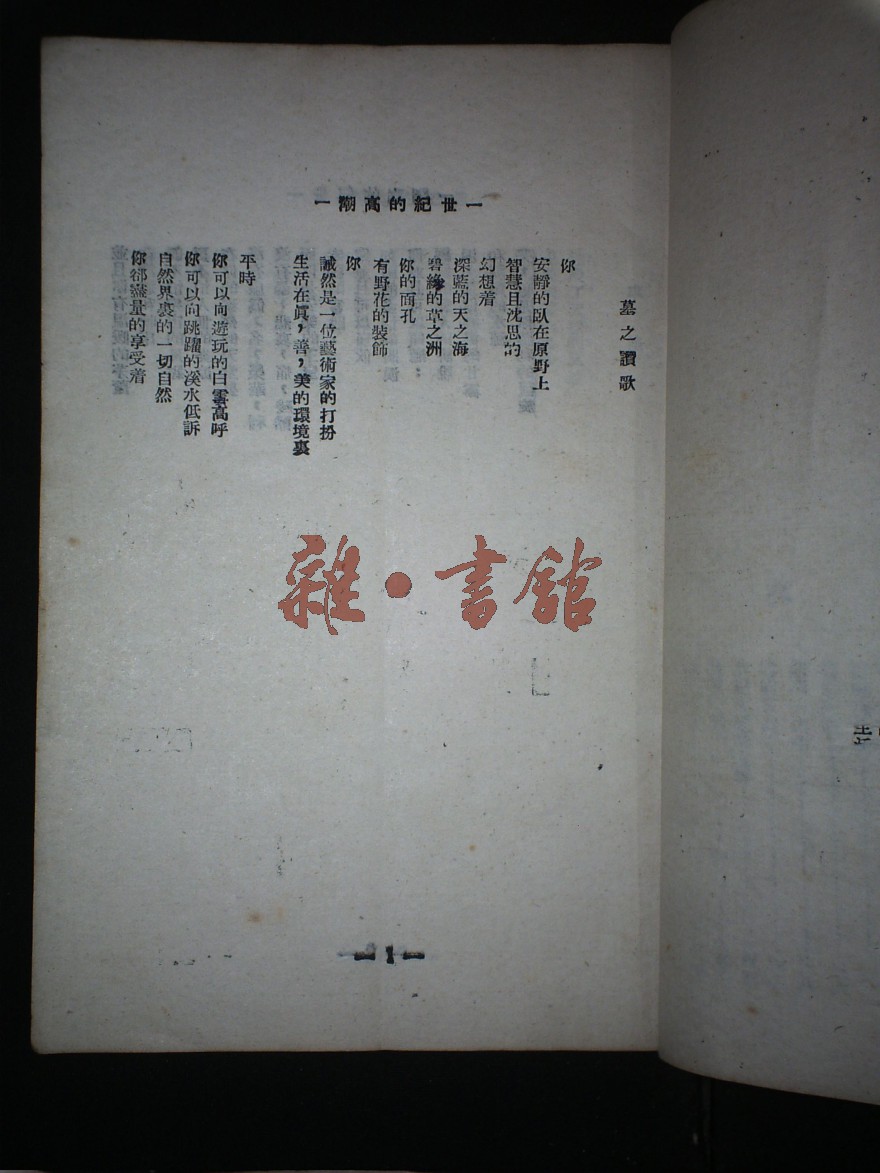 一世紀的高潮一
墓之讚歌
你
安靜的臥在原野上
智慧且沈思的
幻想着
深藍的天之海
碧綠的草之洲
你的面孔
有野花的裝飾
你
誠然是一位藝術家的打扮
生活在眞，善，美的環境裏
平時
你可以向遊玩的白雲高呼
你可以向跳躍的溪水低訴
自然界裏的一切自然
你都盡量的享受着
雜·書館
1